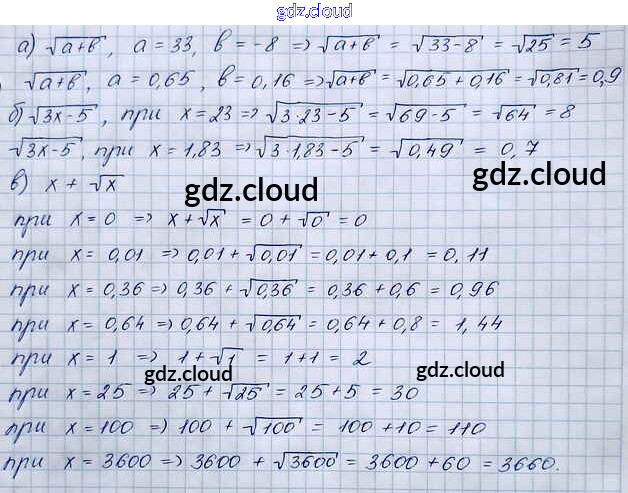 gdz.cloud
а) √(a+b), a = 33, b = -8 => √(a+b) = √(33-8) = √25 = 5
√(a+b), a = 0,65, b = 0,16 => √(a+b) = √(0,65+0,16) = √0,81 = 0,9
б) √(3x-5), при x = 23 => √(3·23-5) = √(69-5) = √64 = 8
√(3x-5), при x = 1,83 => √(3·1,83-5) = √0,49 = 0,7
в) x + √x
gdz.cloud gdz.cloud
при x = 0 => x + √x = 0 + √0 = 0
при x = 0,01 => 0,01 + √0,01 = 0,01 + 0,1 = 0,11
при x = 0,36 => 0,36 + √0,36 = 0,36 + 0,6 = 0,96
при x = 0,64 => 0,64 + √0,64 = 0,64 + 0,8 = 1,44
при x = 1 => 1 + √1 = 1 + 1 = 2
gdz.cloud gdz.cloud
при x = 25 => 25 + √25 = 25 + 5 = 30
при x = 100 => 100 + √100 = 100 + 10 = 110
при x = 3600 => 3600 + √3600 = 3600 + 60 = 3660.